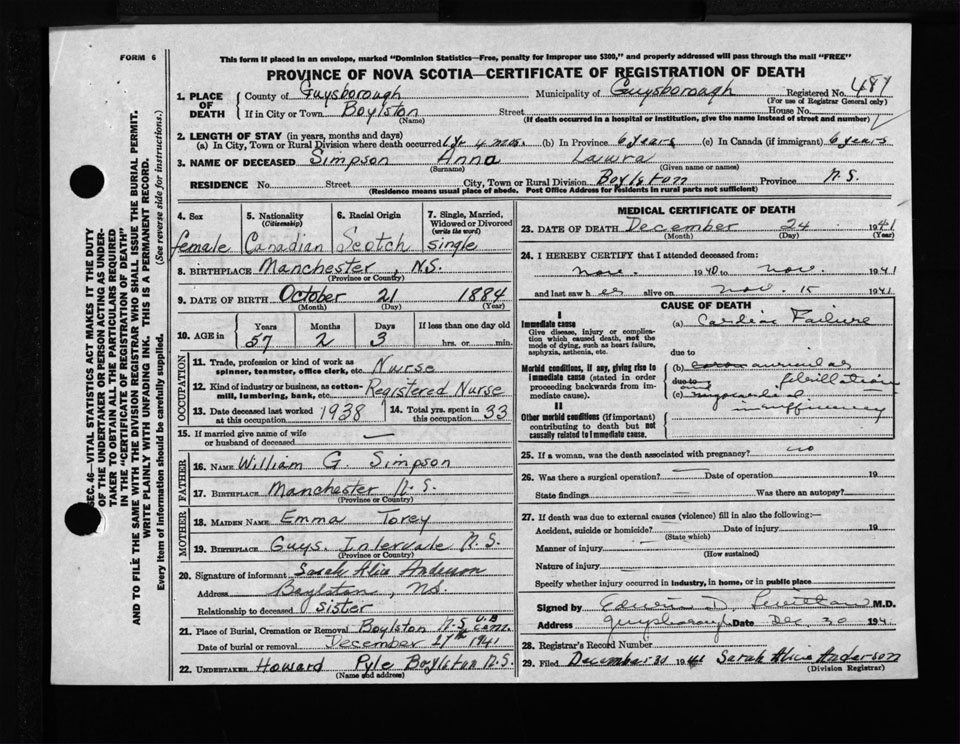 FORM 6
This form if placed in an envelope, marked "Dominion Statistics—Free, penalty for improper use $300," and properly addressed will pass through the mail "FREE"
PROVINCE OF NOVA SCOTIA—CERTIFICATE OF REGISTRATION OF DEATH
SEC. 46—VITAL STATISTICS ACT MAKES IT THE DUTY
OF THE UNDERTAKER OR PERSON ACTING AS UNDER-
TAKER TO OBTAIN ALL THE PARTICULARS REQUIRED
IN THE "CERTIFICATE OF REGISTRATION OF DEATH"
AND TO FILE THE SAME WITH THE DIVISION REGISTRAR WHO SHALL ISSUE THE BURIAL PERMIT.
WRITE PLAINLY WITH UNFADING INK. THIS IS A PERMANENT RECORD.
Every item of information should be carefully supplied. (See reverse side for instructions.)
1. PLACE OF DEATH
County of Guysborough Municipality of Guysborough Registered No. 487
(For use of Registrar General only)
If in City or Town Boylston Street House No.
(Name) (If death occurred in a hospital or institution, give the name instead of street and number)
2. LENGTH OF STAY (in years, months and days)
(a) In City, Town or Rural Division where death occurred 1 yr 4 mos. (b) In Province 6 years (c) In Canada (if immigrant) 6 years
3. NAME OF DECEASED Simpson Anna Laura
(Surname) (Given name or names)
RESIDENCE No. Street City, Town or Rural Division Boylston Province N.S.
(Residence means usual place of abode. Post Office Address for residents in rural parts not sufficient)
4. Sex 5. Nationality (Citizenship) 6. Racial Origin 7. Single, Married, Widowed or Divorced (write the word)
female Canadian Scotch single
8. BIRTHPLACE Manchester, N.S.
(Province or Country)
9. DATE OF BIRTH October 21 1884
(Month) (Day) (Year)
10. AGE in Years Months Days If less than one day old
57 2 3 hrs. or min.
OCCUPATION
11. Trade, profession or kind of work as spinner, teamster, office clerk, etc. Nurse
12. Kind of industry or business, as cotton-mill, lumbering, bank, etc. Registered Nurse
13. Date deceased last worked at this occupation 1938 14. Total yrs. spent in this occupation 33
15. If married give name of wife or husband of deceased —
FATHER
16. NAME William G. Simpson
17. BIRTHPLACE Manchester N.S.
(Province or Country)
MOTHER
18. MAIDEN NAME Emma Torey
19. BIRTHPLACE Guys. Intervale N.S.
(Province or Country)
20. Signature of informant Sarah Alice Anderson
Address Boylston, NS.
Relationship to deceased sister
21. Place of Burial, Cremation or Removal Boylston N.S. U.B Cem.
Date of burial or removal December 27th 1941
22. UNDERTAKER Howard Pyle Boylston N.S.
(Name and address)
MEDICAL CERTIFICATE OF DEATH
23. DATE OF DEATH December 24 1941
(Month) (Day) (Year)
24. I HEREBY CERTIFY that I attended deceased from:
Nov. 1940 to Nov. 1941
and last saw her alive on Nov. 15 1941
CAUSE OF DEATH
I
Immediate cause
Give disease, injury or complication which caused death, not the mode of dying, such as heart failure, asphyxia, asthenia, etc.
(a) Cardiac Failure
due to
Morbid conditions, if any, giving rise to immediate cause (stated in order proceeding backwards from immediate cause).
(b) auricular
due to fibrillation
(c) myocardial
insufficiency
II
Other morbid conditions (if important) contributing to death but not causally related to immediate cause.
25. If a woman, was the death associated with pregnancy? no
26. Was there a surgical operation? — Date of operation 19
State findings — Was there an autopsy?
27. If death was due to external causes (violence) fill in also the following:—
Accident, suicide or homicide? Date of injury 19
(State which)
Manner of injury —
(How sustained)
Nature of injury —
Specify whether injury occurred in industry, in home, or in public place
Signed by Edwin D. M.D.
Address Guysborough Date Dec 30 194
28. Registrar's Record Number
29. Filed December 31 1941 Sarah Alice Anderson
(Division Registrar)